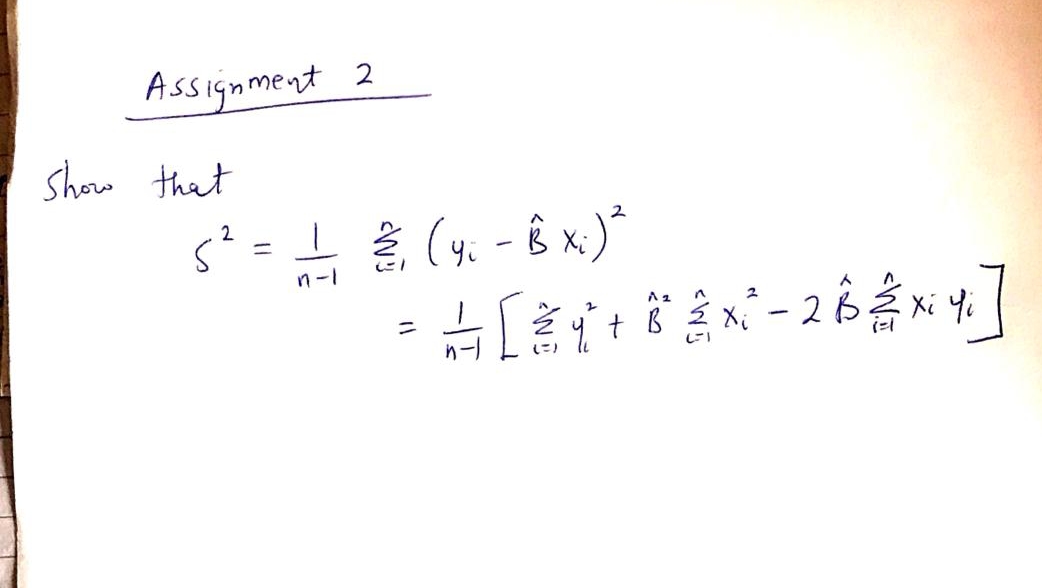 Assignment 2
Show that
S² = 1/(n-1) Σ_{i=1}^{n} (yᵢ - B̂ xᵢ)²
= 1/(n-1) [Σ_{i=1}^{n} yᵢ² + B̂² Σ_{i=1}^{n} xᵢ² - 2 B̂ Σ_{i=1}^{n} xᵢ yᵢ]